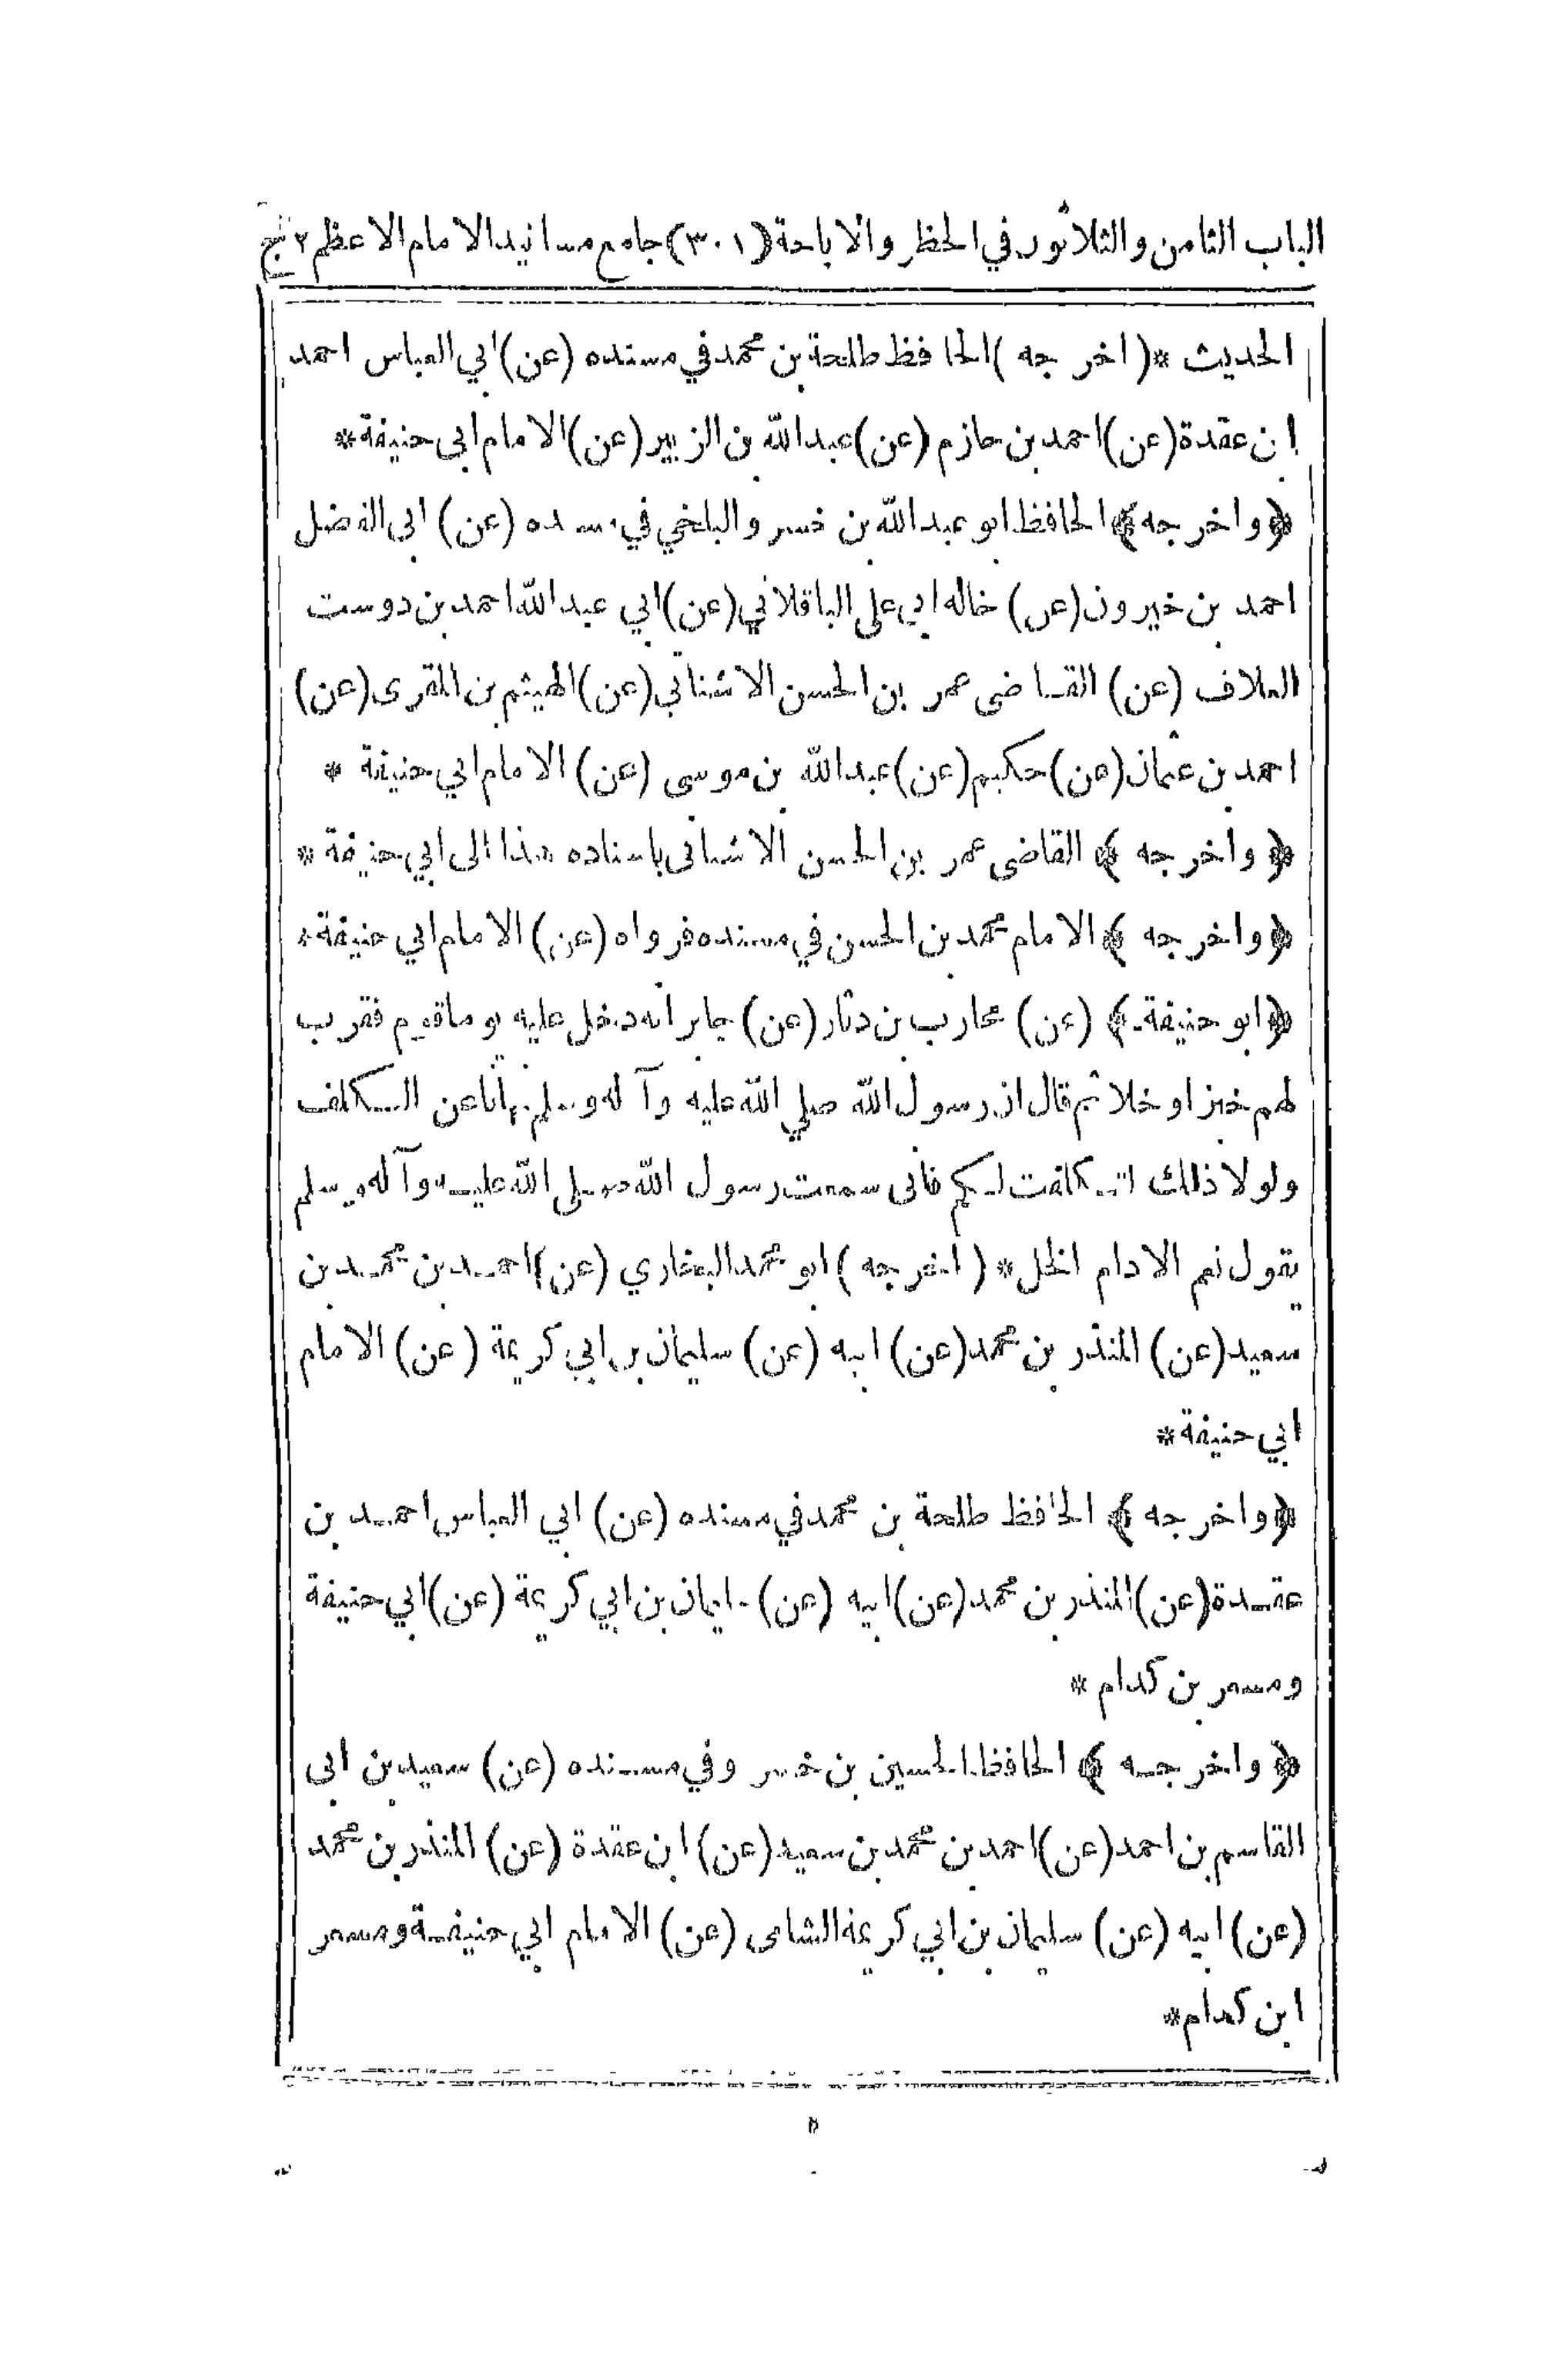 الباب الثامن والثلاثون في الحظر والاباحة (٣٠١) جامع مسانيد الامام الاعظم ٢ ج
الحديث * (اخرجه) الحافظ طلحة بن محمد في مسنده (عن) ابي العباس احمد
ابن عقدة (عن) احمد بن حازم (عن) عبد الله بن الزبير (عن) الامام ابي حنيفة *
﴿واخرجه﴾ الحافظ ابو عبد الله بن خسرو البلخي في مسنده (عن) ابي الفضل
احمد بن خيرون (عن) خاله ابي علي الباقلاني (عن) ابي عبد الله احمد بن دوست
العلاف (عن) القاضى عمر بن الحسن الاشناني (عن) الهيثم بن المقرى (عن)
احمد بن عثمان (عن) حكيم (عن) عبد الله بن موسى (عن) الامام ابي حنيفة *
﴿واخرجه﴾ القاضى عمر بن الحسن الاشناني باسناده هذا الى ابي حنيفة *
﴿واخرجه﴾ الامام محمد بن الحسن في مسنده فرواه (عن) الامام ابي حنيفة *
﴿ابو حنيفة﴾ (عن) محارب بن دثار (عن) جابر انه دخل عليه يوما قوم فقرب
لهم خبزا وخلا ثم قال ان رسول الله صلي الله عليه وآله وسلم نهانا عن التكلف
ولولا ذلك لتكلفت لكم فانى سمعت رسول الله صلى الله عليه وآله وسلم
يقول نعم الادام الخل * (اخرجه) ابو محمد البخاري (عن) احمد بن محمد بن
سعيد (عن) المنذر بن محمد (عن) ابيه (عن) سليمان بن ابي كريمة (عن) الامام
ابي حنيفة *
﴿واخرجه﴾ الحافظ طلحة بن محمد في مسنده (عن) ابي العباس احمد بن
عقدة (عن) المنذر بن محمد (عن) ابيه (عن) سليمان بن ابي كريمة (عن) ابي حنيفة
ومسعر بن كدام *
﴿واخرجه﴾ الحافظ الحسين بن خسرو في مسنده (عن) سعيد بن ابى
القاسم بن احمد (عن) احمد بن محمد بن سعيد (عن) ابن عقدة (عن) المنذر بن محمد
(عن) ابيه (عن) سليمان بن ابي كريمة الشامى (عن) الامام ابي حنيفة ومسعر
ابن كدام *